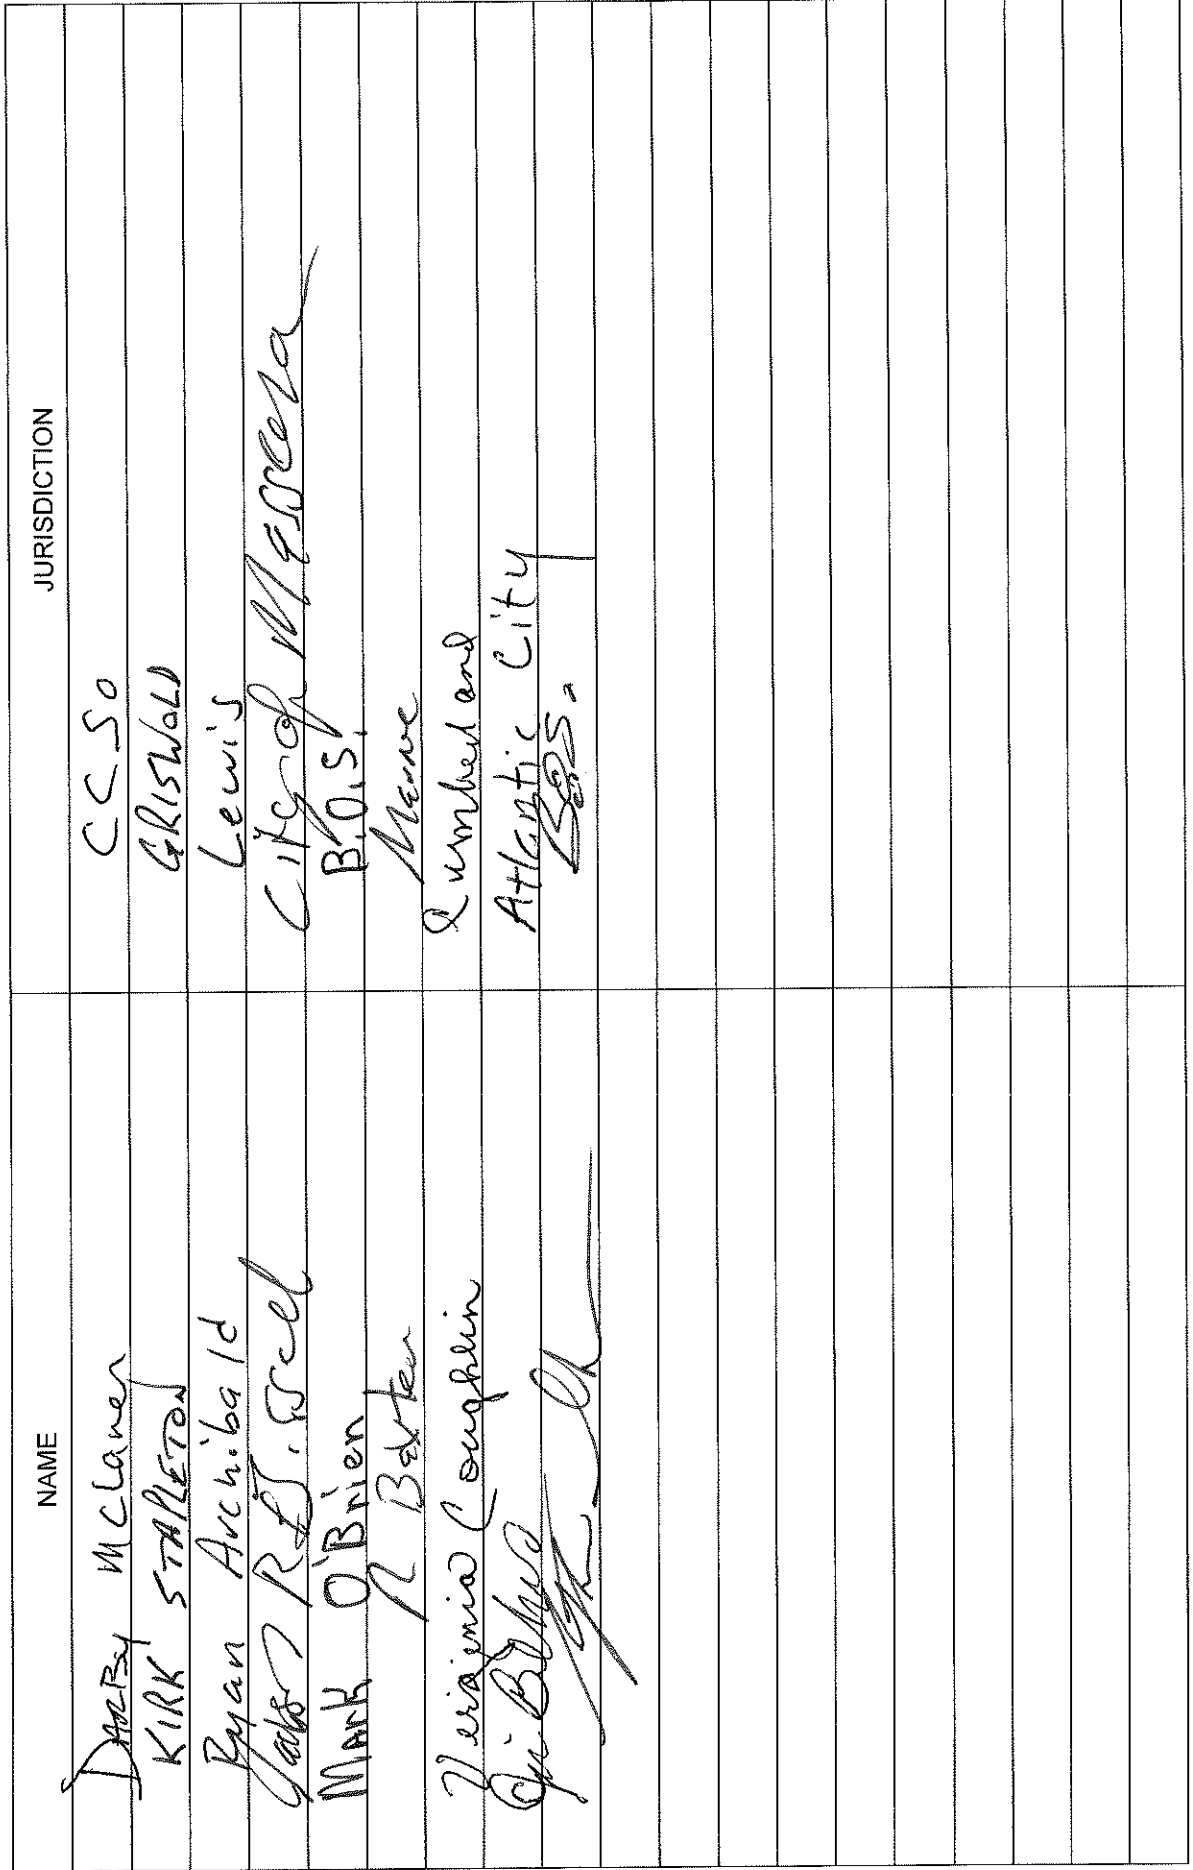 NAME JURISDICTION
DARBy McLaren CCSO
KIRK STAPLETON GRISWOLD
Ryan Archibald Lewis
City of Massena
Mark O'Brien B.O.S.
R Baxter Marne
Virginia Coughlin
Jim Atlantic City
B.O.S.